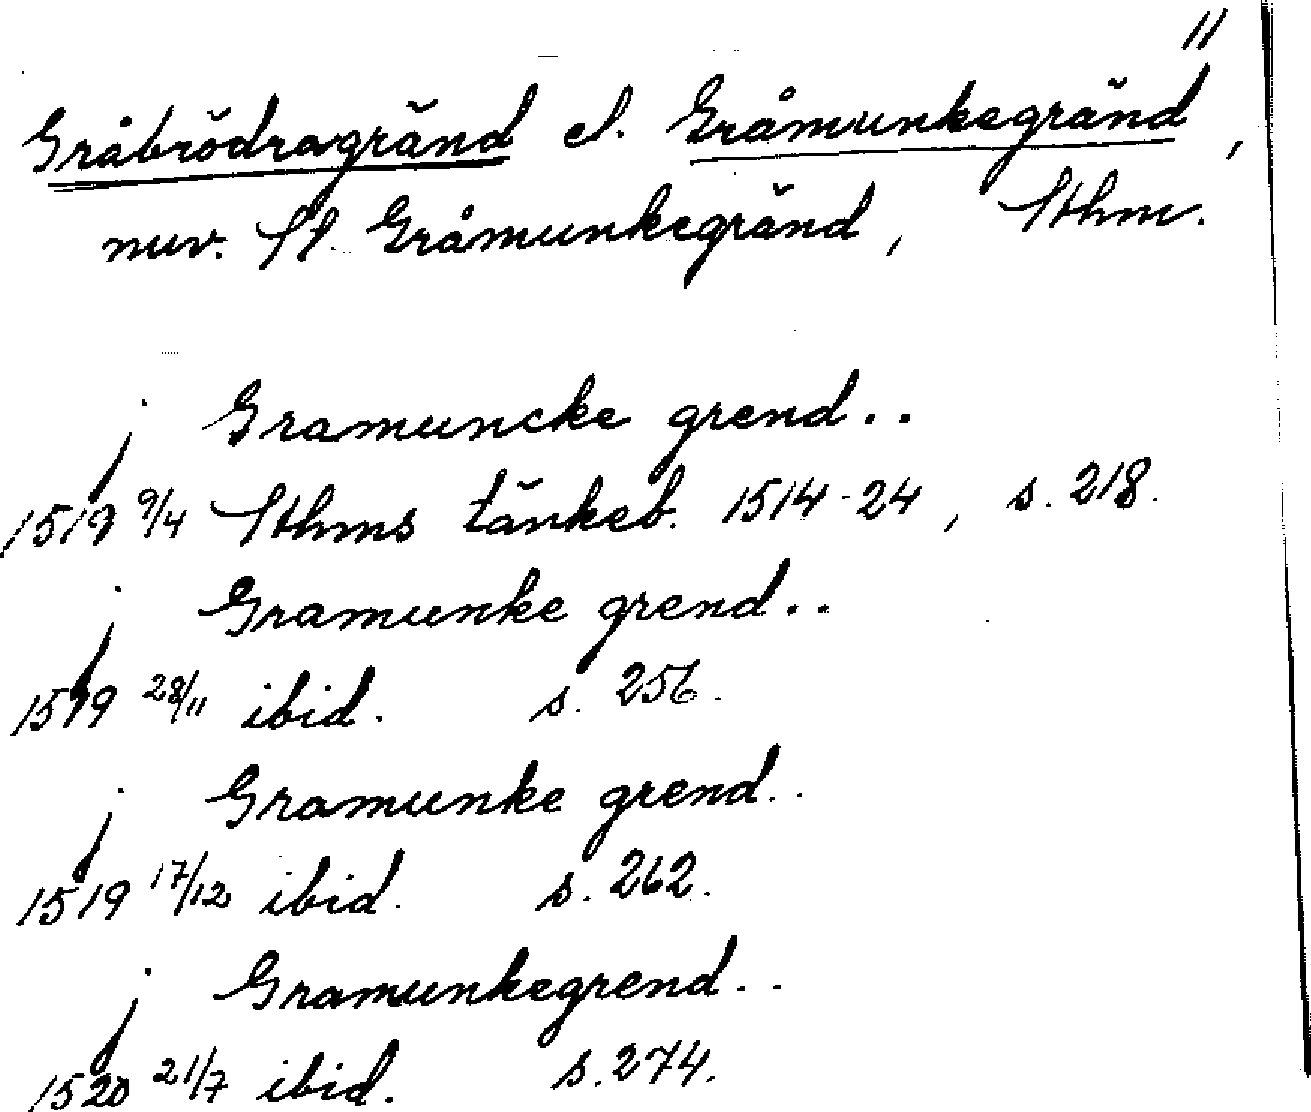 11
Gråbrödragränd el. Gråmunkegränd,
nuv. St. Gråmunkegränd, Sthm.
j Gramuncke grend..
1519 9/4 Sthms tänkeb. 1514-24, s. 218.
j Gramunke grend..
1519 28/11 ibid. s. 256.
j Gramunke grend..
1519 17/12 ibid. s. 262.
j Gramunkegrend..
1520 21/7 ibid. s. 274.